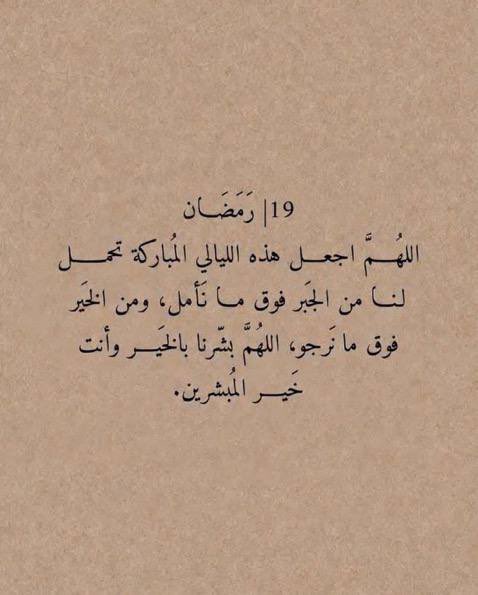 19| رَمَضَــان
اللهُــمَّ اجعــل هذه الليالي المُباركة تحمــل
لنــا من الجَبر فوق مــا نَأمل، ومن الخَير
فوق ما نَرجو، اللهُمَّ بشّرنا بالخَيــر وأنت
خَيــر المُبشرين.